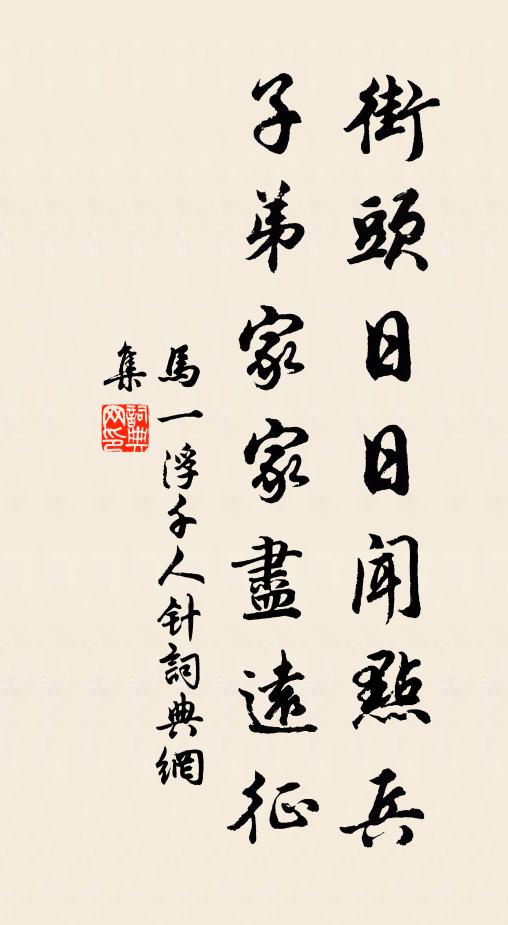 街頭日日聞點兵
子弟家家盡遠征
馬一浮千人针詞典網
集
詞典
网印